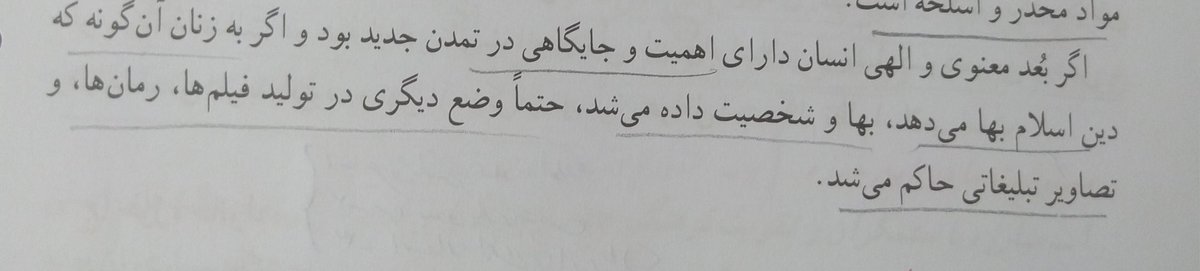 مواد مخدر و اسلحه است.
اگر بُعد معنوی و الهی انسان دارای اهمیت و جایگاهی در تمدن جدید بود و اگر به زنان آن‌گونه که
دین اسلام بها می‌دهد، بها و شخصیت داده می‌شد، حتماً وضع دیگری در تولید فیلم‌ها، رمان‌ها، و
تصاویر تبلیغاتی حاکم می‌شد.